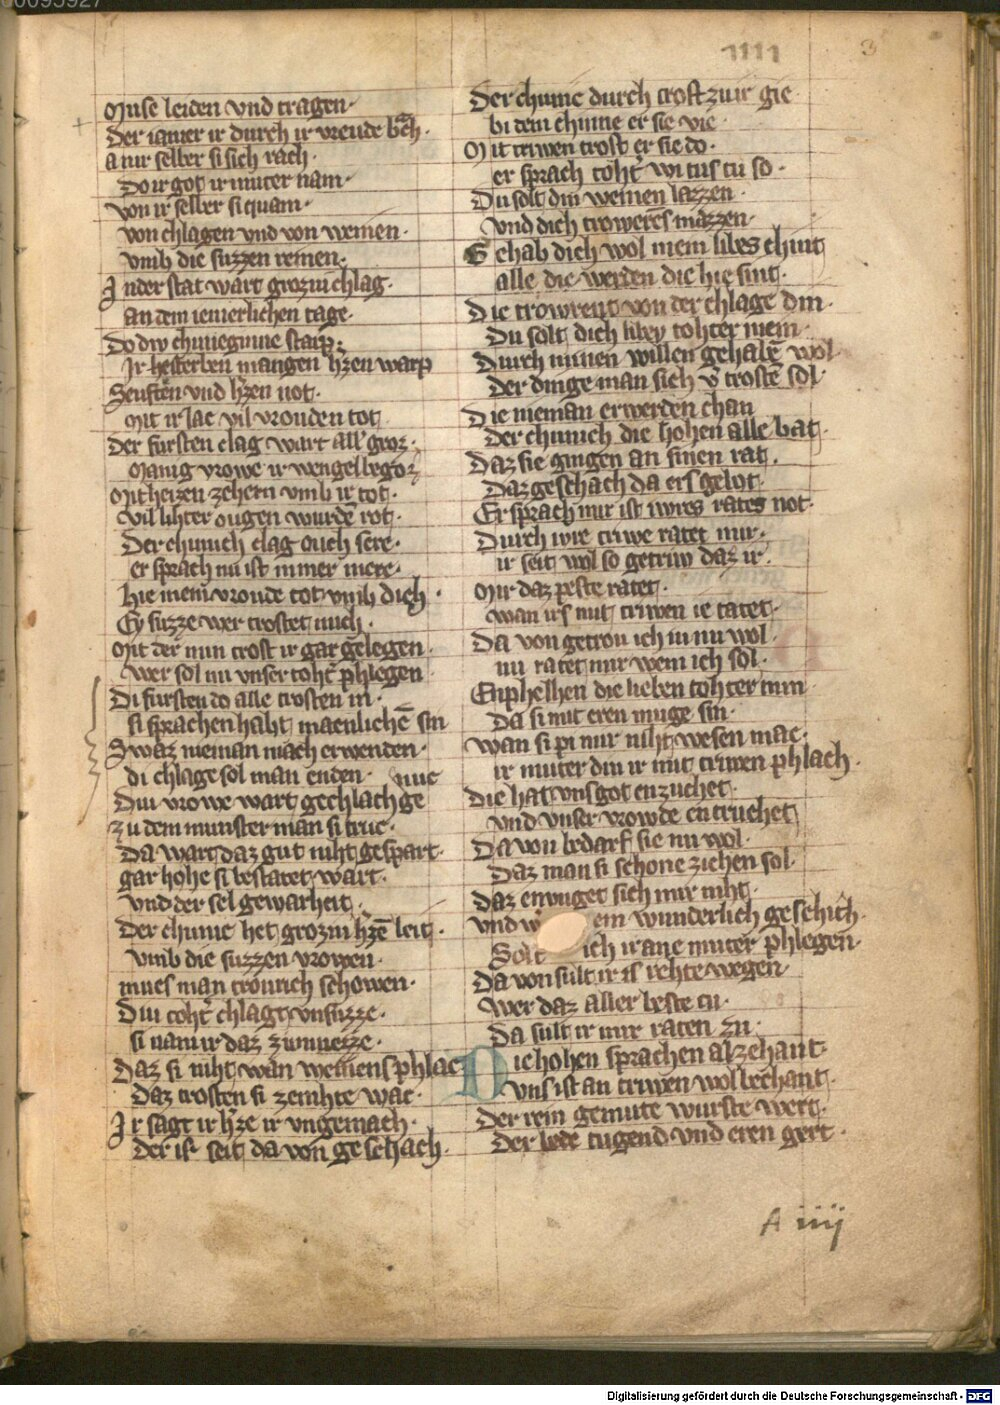 00095927
IIII
3
Muse leiden vnd tragen·
Der iamer ir durch ir vreude bch̄·
a nir selber si sich rach·
Do ir got ir muter nam·
von ir selber si quam·
von chlagen vnd von weinen·
vmb die suzzen reinen·
Inder stat wart grozziu chlag·
an dem iemerlichen tage·
Do diw chunegunne starp:
Ir hersterben mangen h̾zen warp
Seuften vnd h̾zen not·
mit ir lac vil vrouden tot
Der fursten clag wart all groz·
Manig vrowe ir wengel begoz
mit heizen zehern vmb ir tot·
vil lihter ougen wurdē rot·
Der chunich clag ouch sere·
er sprach nu ist immer mere·
hie mein vroude tot vmb dich·
Ey suzze wer trostet mich·
Mit der min trost ir gar gelegen·
wer sol nu vnser toht̾ phlegen
Di fursten do alle trosten in·
si sprachen habt maenlichē sin
Swaz nieman mach erwenden·
di chlage sol man enden·
Diu vrowe wart gechlach ge nuc
zu dem munster man si truc·
Da wart daz gut niht gespart·
gar hohe si bestatet wart·
vnd der sel gewarheit·
Der chunic het grozziu h̾zē leit·
vmb die suzzen vrowen·
mues man trourich schowen·
Diu toht̾ chlagt vnsuzze·
si nam ir daz zwunezze·
Daz si niht wan weiniens phlac
daz trosten si zemhte wac·
Ir sagt ir h̾ze ir vngemach·
der ist seit da von geschach·
Der chunic durch trost zuir gie
bi dem chinne er sie vie·
Mit triwen trost er sie do·
er sprach toht̾ wi tus tu so·
Du solt din weinen lazzen·
vnd dich trowerens mazzen·
Gehab dich wol mein libes chint
alle die werden die hie sint·
Die trowrent von der chlage din·
Du solt dich libev tohter mein·
Durch minen willen gehabē wol·
der dinge man sich v̾ trostē sol·
Die nieman erwerden chan
der chunich die hohen alle bat·
Daz sie gingen an sinen rat·
Daz geschach da ers gebot·
Er sprach mir ist iwres rates not·
Durch iwre triwe ratet mir·
ir seit wol so getriw daz ir·
Mir daz peste ratet·
wan irs mit triwen ie tatet·
Da von getrou ich iu nu wol·
nu ratet mir wem ich sol·
Enphelhen die lieben tohter min·
Da si mit eren muge sin·
wan si pi mir niht wesen mac·
ir muter diu ir mit triwen phlach·
Die hat vns got enzuchet·
vnd vnser vrowde entruchet
Da von bedarf sie nu wol·
Daz man si schone ziehen sol·
daz enfuget sich mir niht·
vnd w ein wunderlich geschich·
Solt ich ir ane muter phlegen·
Da von sult ir is rehte wegen·
wer daz aller beste tu·
Da sult ir mir raten zu·
Die hohen sprachen alzehant·
vns ist an triwen wol bechant·
Der rein gemute wurste wert·
der bede tugend vnd eren gert·
A iiij
Digitalisierung gefördert durch die Deutsche Forschungsgemeinschaft - DFG